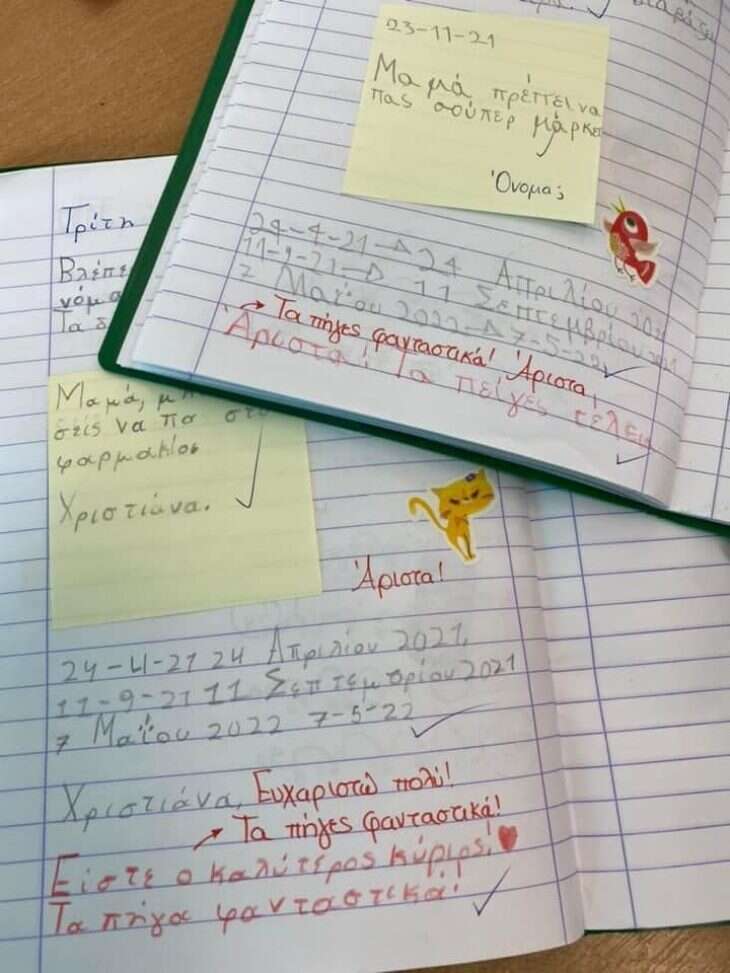 23-11-21
Μαμά πρέπει να
πας σούπερ μάρκετ
Όνομα;
24-4-21-Δ 24 Απριλίου 2021
11-9-21-Δ 11 Σεπτεμβρίου 2021
7 Μαΐου 2022-Δ 7-5-22
→ Τα πήγες φανταστικά! Άριστα,
Άριστα! Τα πείγες τέλεια
Τρίτη
Βλέπε
νόμα
Τα δ
Μαμά, μπ
στις να πα στο
φαρμακίοσ
Χριστιάνα.
Άριστα!
24-4-21 24 Απριλίου 2021,
11-9-21 11 Σεπτεμρρίου 2021
7 Μαΐου 2022 7-5-22
Χριστιάνα, Ευχαριστώ πολύ!
→ Τα πήγες φανταστικά!
Είστε ο καλύτερος κύριος!
Τα πήγα φανταστεκά!